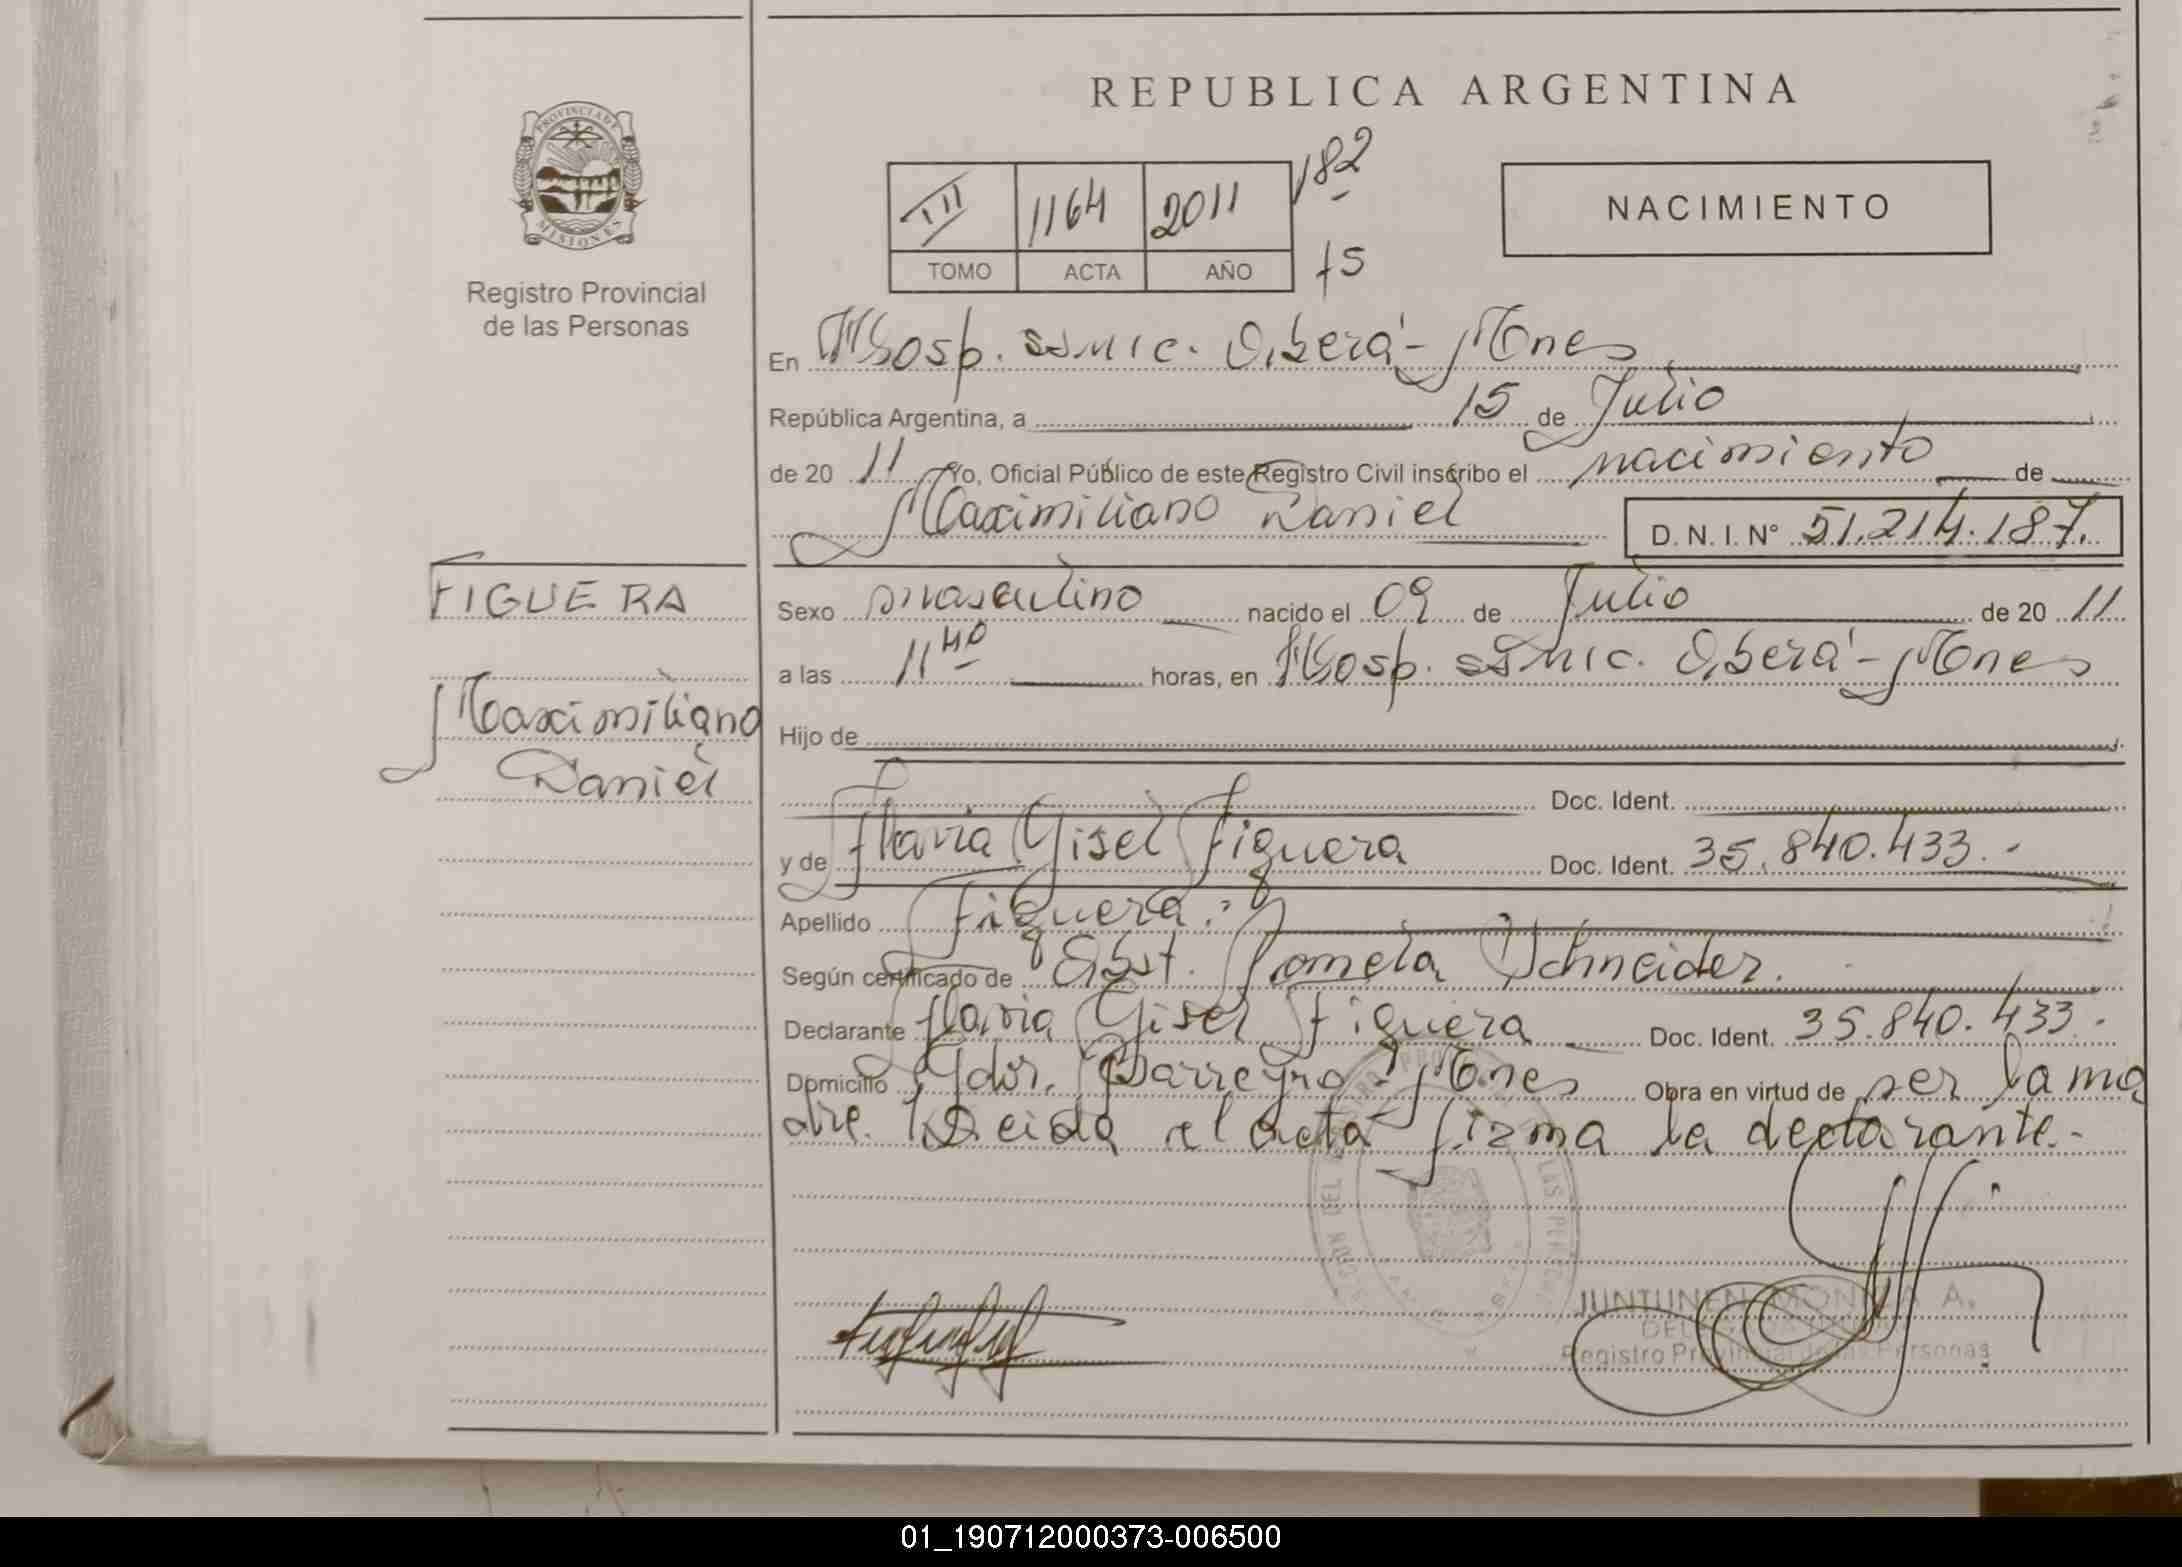 REPUBLICA ARGENTINA
PROVINCIA DE
MISIONES
Registro Provincial
de las Personas
III 1164 2011 182
TOMO ACTA AÑO 75
NACIMIENTO
En Hosp. SSMIC. Oberá - Mnes
República Argentina, a 15 de Julio
de 20 11 Yo, Oficial Público de este Registro Civil inscribo el nacimiento de
Maximiliano Daniel D. N. I. Nº 51.214.187.
FIGUERA
Maximiliano
Daniel
Sexo masculino nacido el 09 de Julio de 20 11
a las 11 40 horas, en Hosp. SSMIC. Oberá - Mnes
Hijo de
Doc. Ident.
y de Flavia Gisel Figuera Doc. Ident. 35.840.433.-
Apellido Figuera.-
Según certificado de Obst. Pamela Schneider.
Declarante Flavia Gisel Figuera Doc. Ident. 35.840.433.-
Domicilio Gdor. Barreyro - Mnes Obra en virtud de ser la ma
dre. Leída el acta firma la declarante.-
JUNTUNEN MONICA A.
Registro Provincial de las Personas
01_190712000373-006500